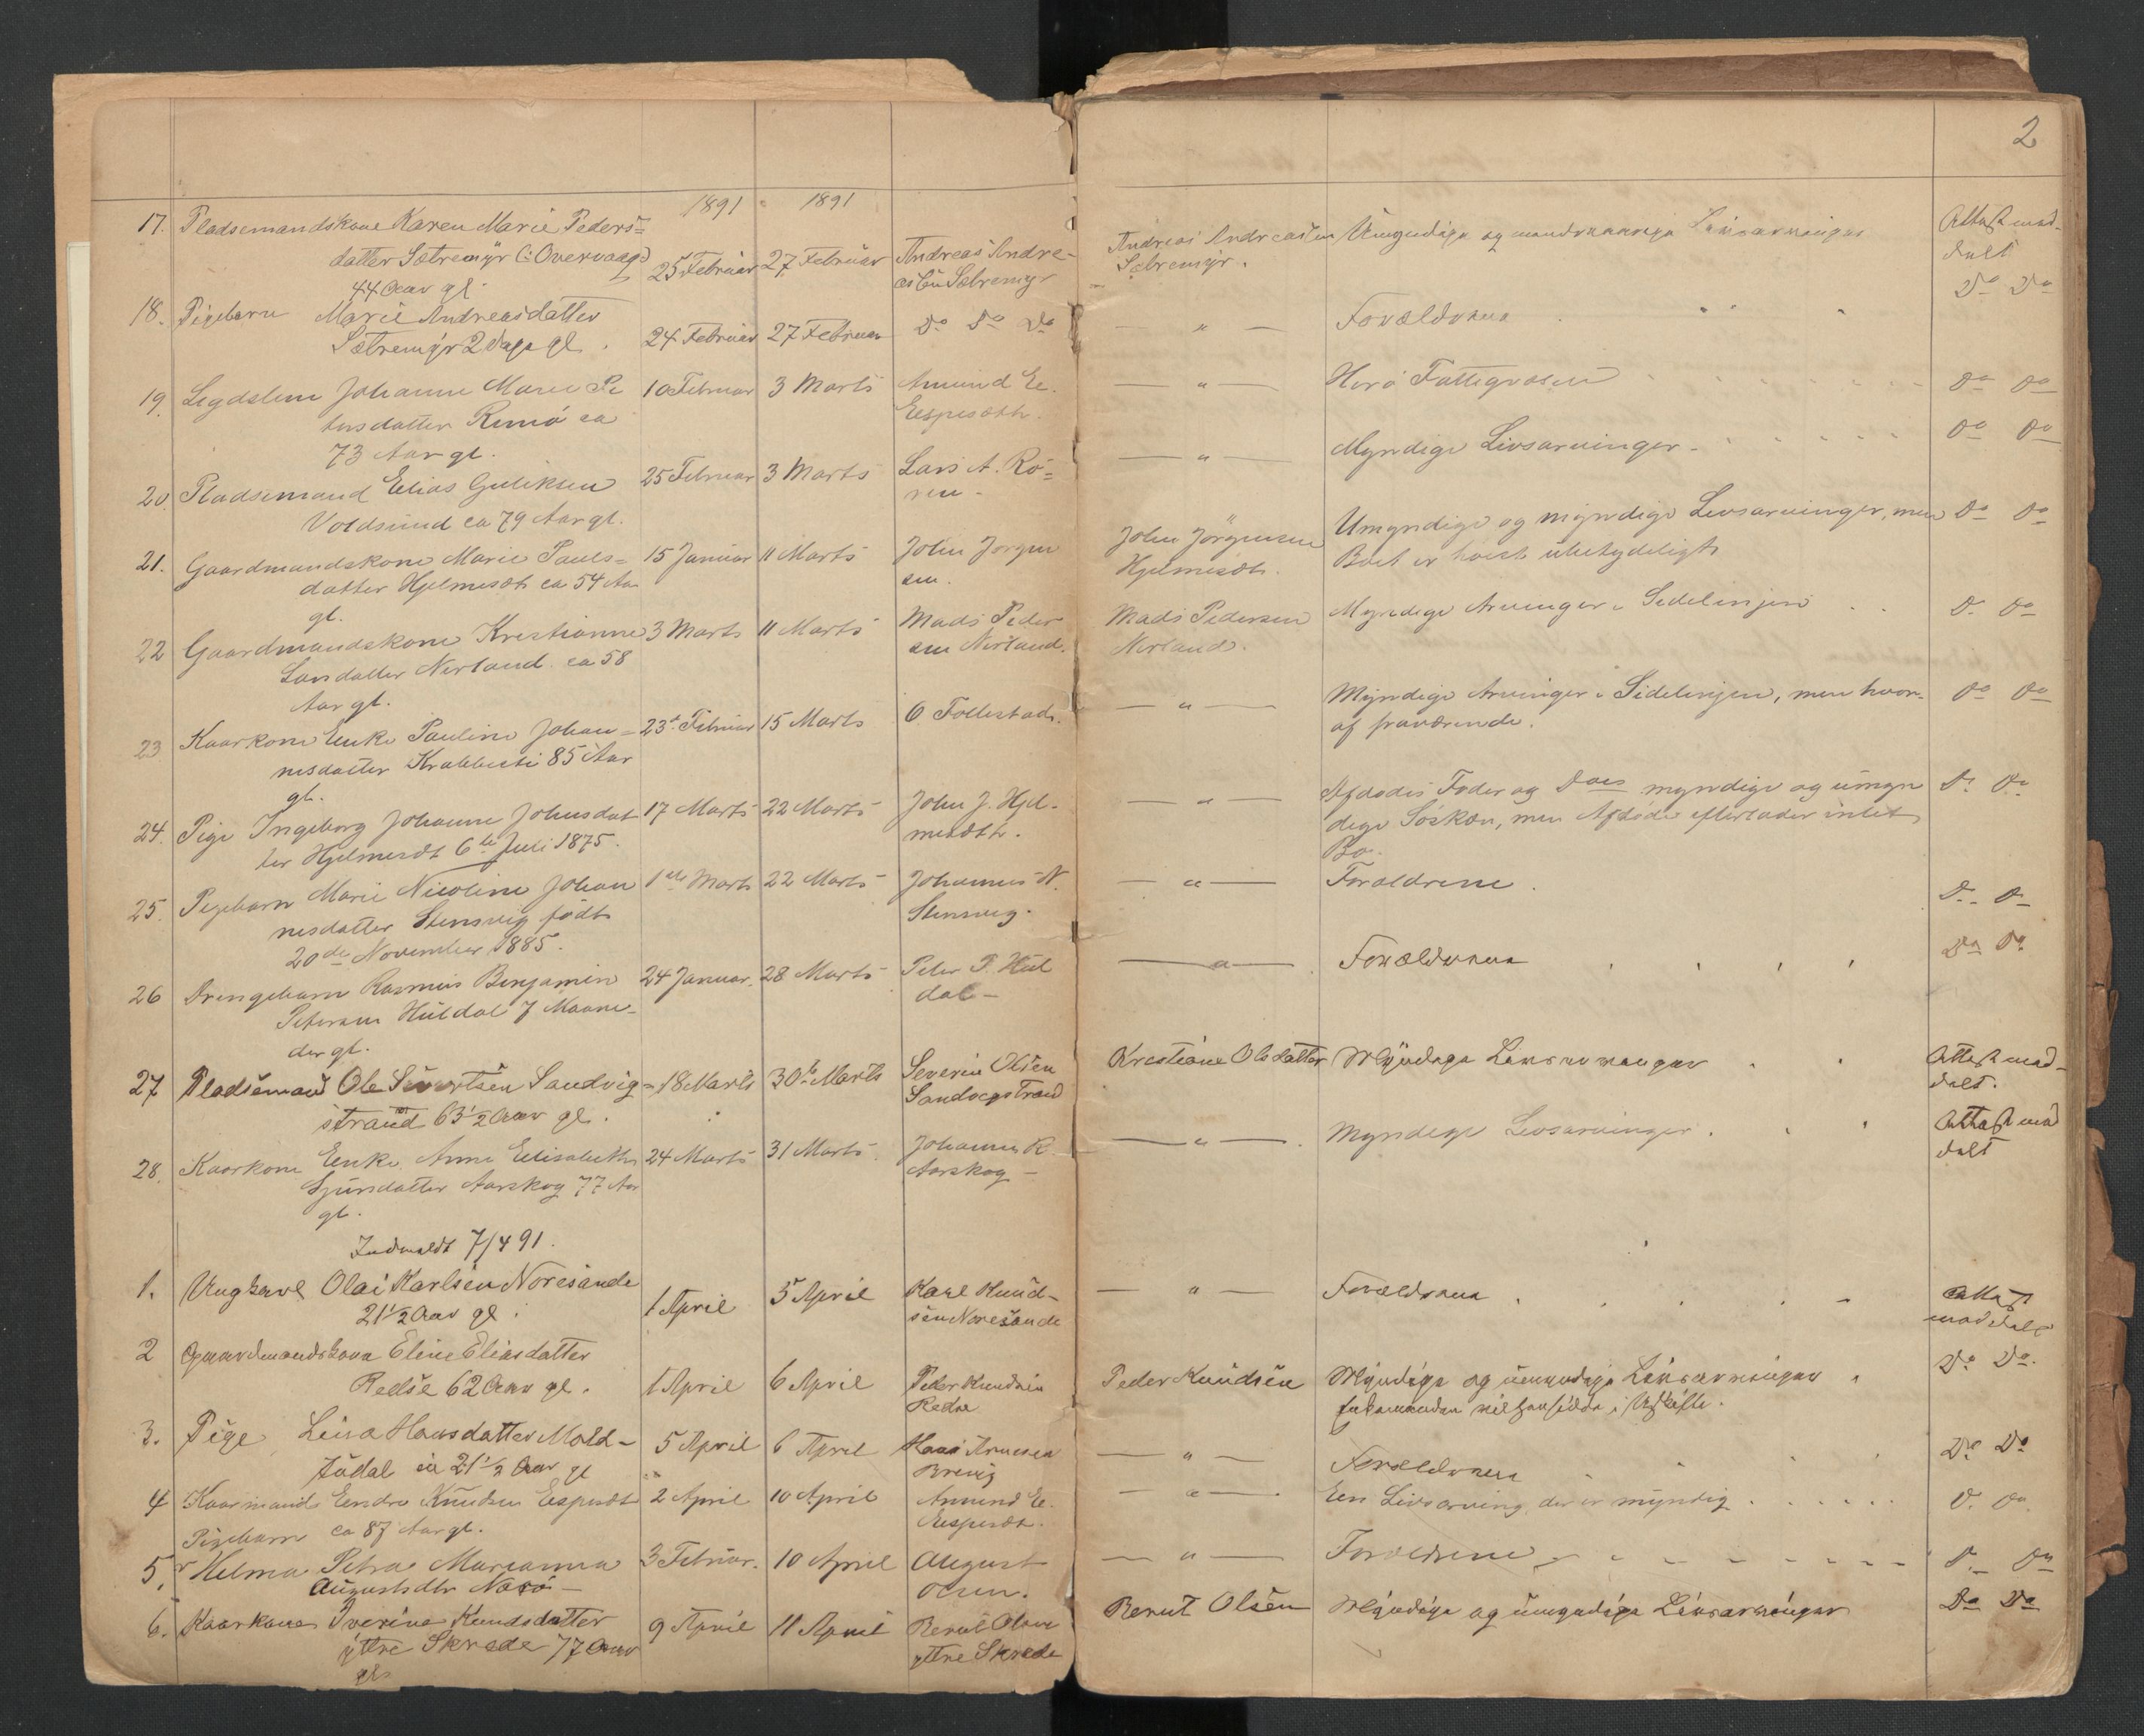 2
1891 1891
17. Pladsemandskone Karen Marie Peders=
datter Sætremyr (: Overvaag)
44 Aar gl.
25 Februar 27 Februar Andreas Andre-
asen Sætremyr
Andreas Andreasen
Sætremyr.
Umyndige og mandvaarige Livsarvinger
Attest med-
delt
18. Pigebarn Marie Andreasdatter
Sætremyr 2 dage gl.
24 Februar 27 Februar Do Do Do
— " — Forældrene Do Do
19. Legdslem Johanne Marie Pe
tersdatter Remø ca
73 Aar gl.
10 Februar 3 Marts Amund E.
Espesæth.
— " — Herø Fattigvæsen Do Do
20. Pladsemand Elias Guliksen
Voldsund ca 79 Aar gl.
25 Februar 3 Marts Lars A. Rö=
ren -
— " — Myndige Livsarvinger - Do Do
21. Gaardmandskone Marie Pauls=
datter Hjelmesæt ca 54 Aar
gl.
15 Januar 11 Marts John Jørgen
sen.
John Jörgensen
Hjelmesæt.
Umyndige og myndige Livsarvinger, men
Boet er høist ubetydeligt
Do Do
22 Gaardmandskone Krestianne
Larsdatter Nerland ca 58
Aar gl.
3 Marts 11 Marts Mads Peder
sen Nerland.
Mads Pedersen
Nerland.
Myndige Arvinger i Sidelinjen Do Do
23 Kaarkone Enke Pauline Johan=
nesdatter Krabbesti 85 Aar
gl.
23de Februar 15 Marts O Tollestad.
— " — Myndige Arvinger i Sidelinjen, men hvor-
af fraværende.
Do Do
24. Pige Ingeborg Johanne Johnsdat
ter Hjelmesæt 6te Juli 1875.
17 Marts 22 Marts John J. Hjel-
mesæth.
— " — Afdødes Fader og Do myndige og umyn
dige Søsken, men Afdøde efterlader intet
Bo.
Do Do
25. Pigebarn Marie Nicoline Johan
nesdatter Stensvig födt
20de November 1885.
1ste Marts 22 Marts Johannes N.
Stensvig.
— " — Forældrene. Do Do
26 Drengebarn Rasmus Benjamin
Petersen Huldal 7 Maane-
der gl.
24 Januar. 28 Marts Peter P. Hul
dal -
— " — Forældrene Do Do
27 Pladsemand Ole Sivertsen Sandvig=
strand 63½ Aar gl.
18 Marts 30te Marts Severin Olsen
Sandvigstrand
Krestiane Olsdatter Myndige Livsarvinger
Attest med-
delt.
28. Kaarkone Enke Anne Elisabeth
Sjursdatter Aarskog 77 Aar
gl.
24 Marts 31 Marts. Johannes R.
Aarskog -
— " — Myndige Livsarvinger.
Attest med
delt
Indmeldt 7/4 91.
1. Ungkarl Olai Karlsen Noresande
21½ Aar gl.
1 April 5 April Karl Knud-
sen Noresande
— " — Forældrene.
Attest
meddelt
2 Gaardmandskone Eline Eliasdatter
Redse 62 Aar gl.
1 April 6 April Peder Knudsen
Redse
Peder Knudsen Myndige og umyndige Livsarvinger.
Enkemanden vil hensidde i Uskifte.
Do Do.
3. Pige Lina Hansdatter Mold-
tudal ca 21½ Aar gl
5 April 6 April Hans Arnesen
Breivig
— " — Forældrene Do Do
4 Kaarmand Endre Knudsen Espesæt
ca 87 Aar gl.
2 April 10 April Amund E.
Espesæt.
— " — Een Livsarving der er myndig Do Do
5. Pigebarn
Helma Petra Marianna
Augustsdtr Nærø -
3 Februar. 10 April August
Olsen.
— " — Forældrene Do Do
6. Kaarkone Iverine Knudsdatter
yttre Skrede 77 Aar
gl.
9 April 11 April Bernt Olsen
yttre Skrede
Bernt Olsen Myndige og umyndige Livsarvinger Do Do